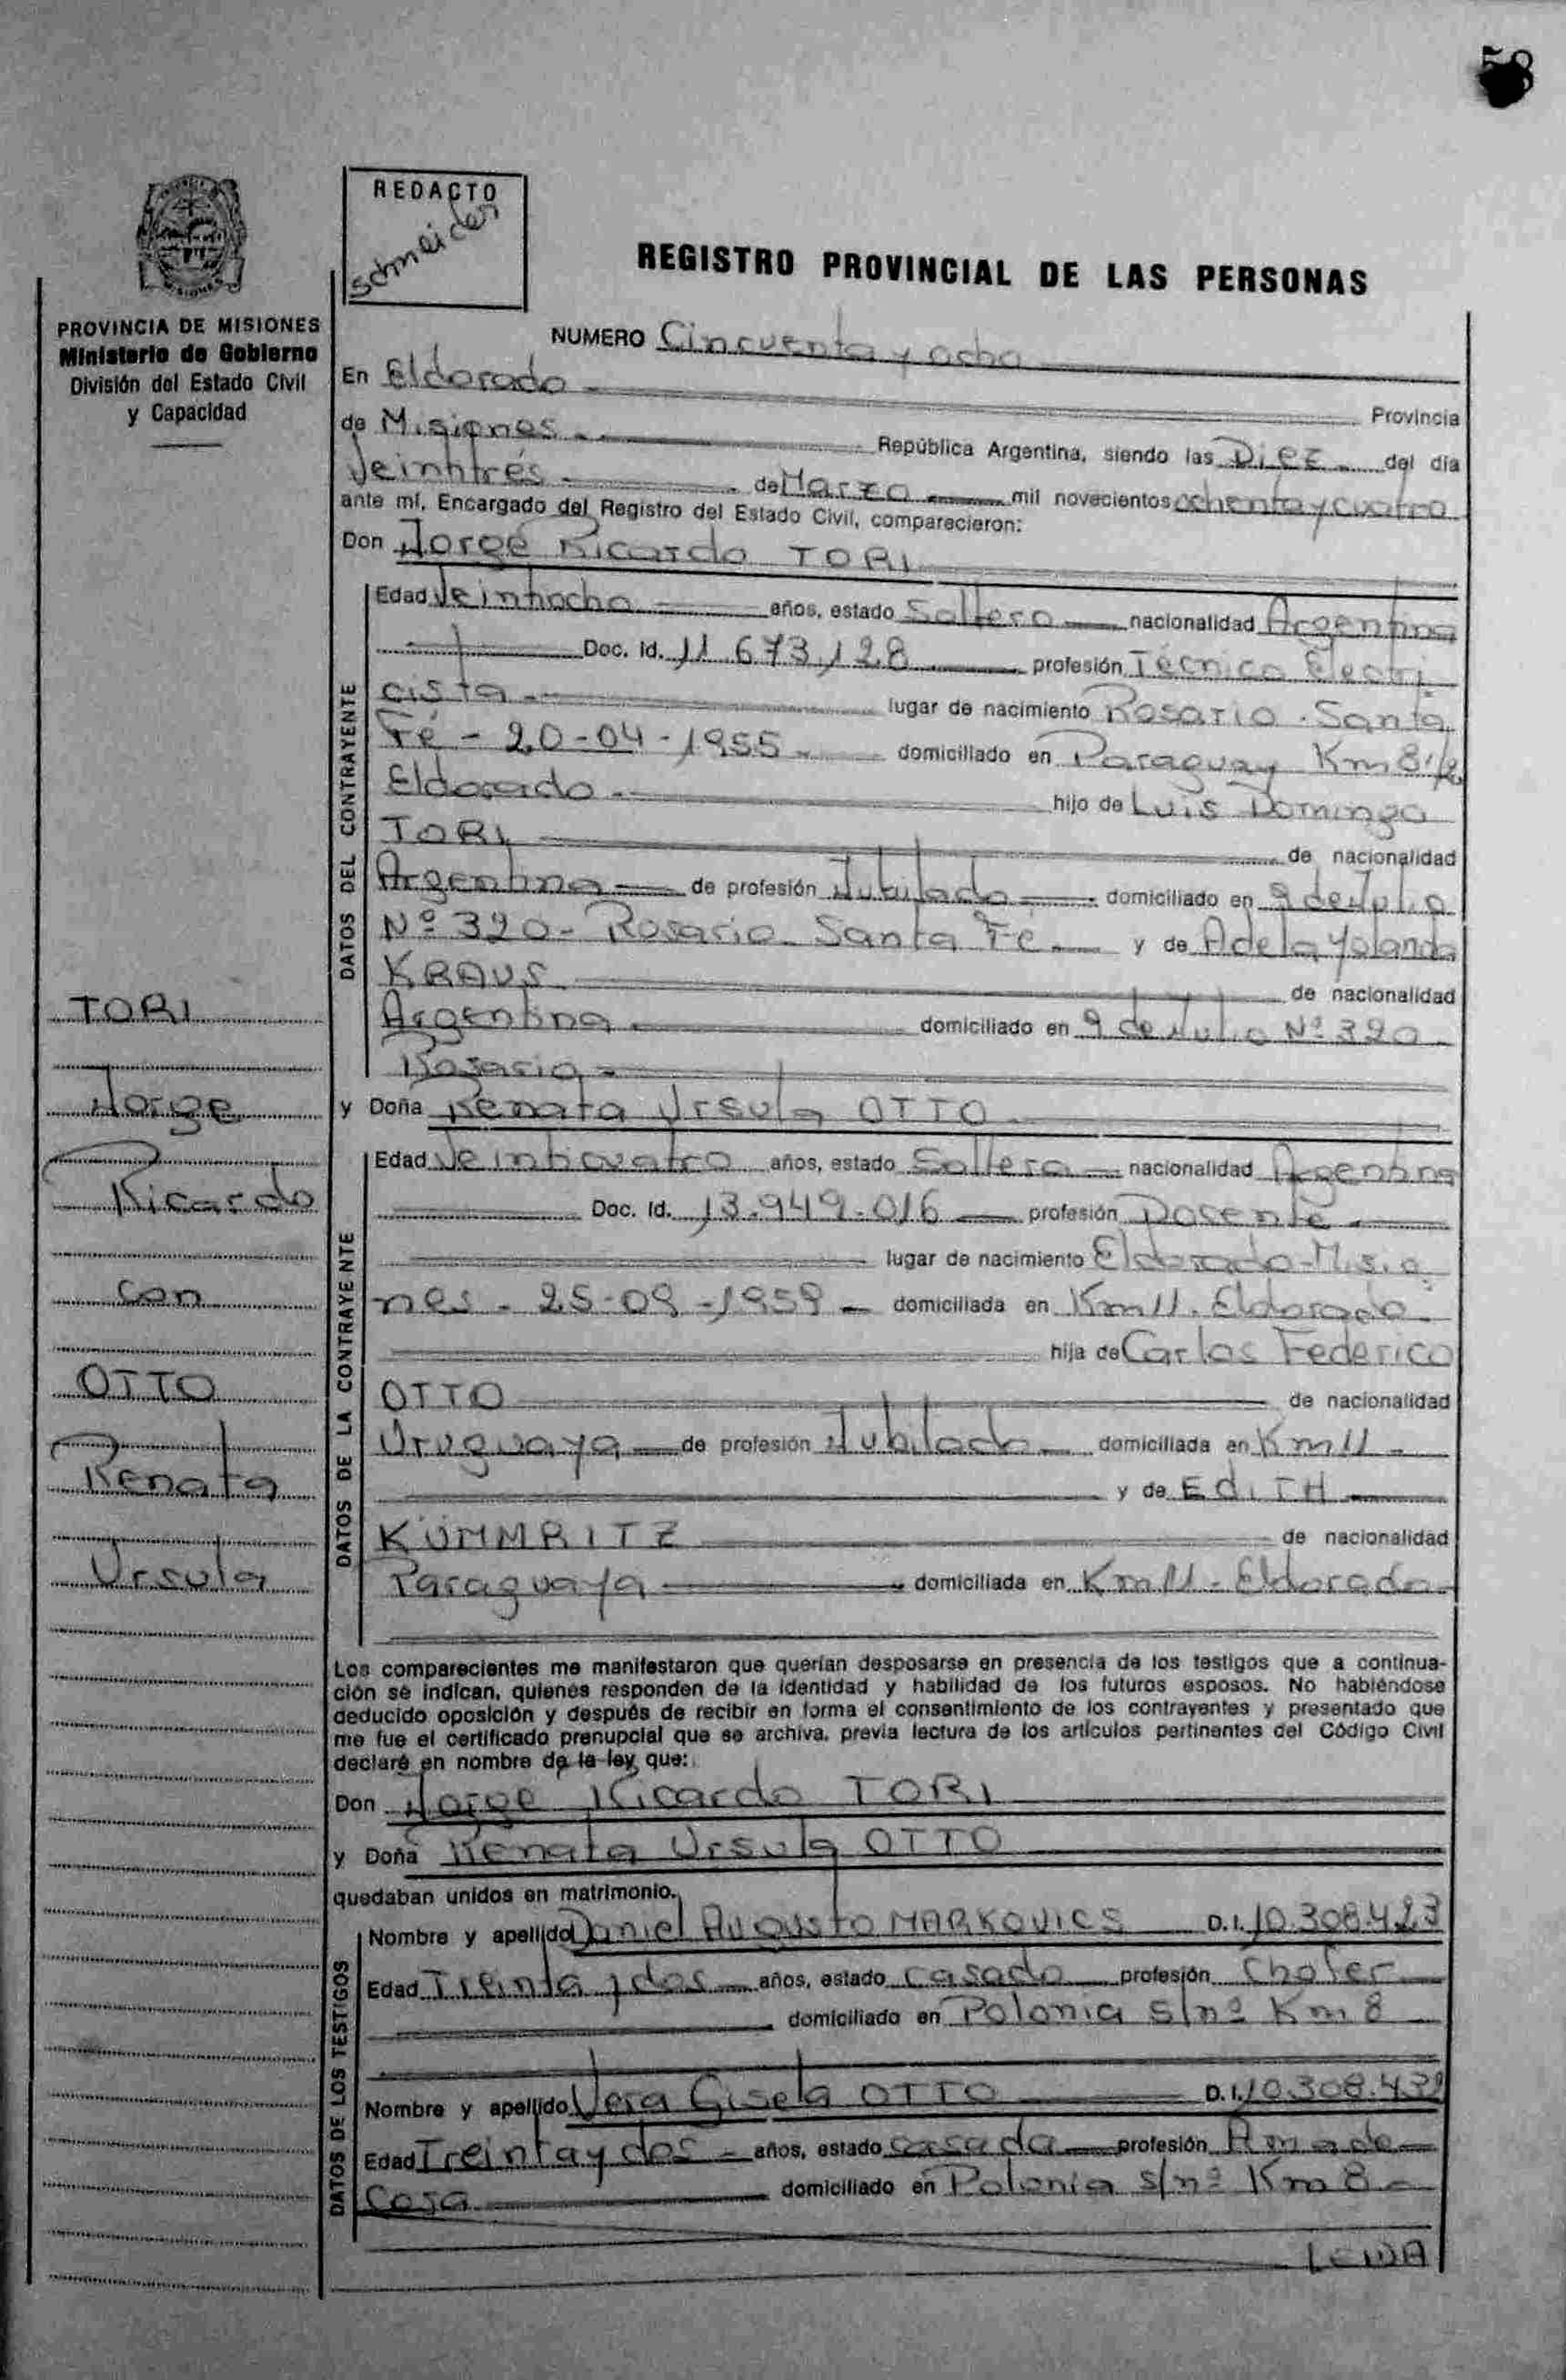 58
REDACTO
Schneider
REGISTRO PROVINCIAL DE LAS PERSONAS
PROVINCIA DE MISIONES
Ministerio de Gobierno
División del Estado Civil
y Capacidad
TORI
Jorge
Ricardo
con
OTTO
Renata
Ursula
NUMERO Cincuenta y ocho
En Eldorado Provincia
de Misiones República Argentina, siendo las Diez del día
Veintitrés de Marzo mil novecientos ochenta y cuatro
ante mí, Encargado del Registro del Estado Civil, comparecieron:
Don Jorge Ricardo TORI
DATOS DEL CONTRAYENTE
Edad Veintiocho años, estado Soltero nacionalidad Argentina
Doc. Id. 11.673,128 profesión Técnico Electri
cista lugar de nacimiento Rosario - Santa
Fé - 20-04-1955 domiciliado en Paraguay Km 8 1/2
Eldorado hijo de Luis Domingo
TORI de nacionalidad
Argentina de profesión Jubilado domiciliado en 9 de Julio
Nº 320 - Rosario Santa Fé y de Adela Yolanda
KRAUS de nacionalidad
Argentina domiciliado en 9 de Julio Nº 320
Rosario
y Doña Renata Ursula OTTO
DATOS DE LA CONTRAYENTE
Edad Veinticuatro años, estado Soltera nacionalidad Argentina
Doc. Id. 13.949.016 profesión Docente
lugar de nacimiento Eldorado - Misio
nes - 25-09-1959 domiciliada en Km 11. Eldorado
hija de Carlos Federico
OTTO de nacionalidad
Uruguaya de profesión Jubilado domiciliada en Km 11
y de EdiTH
KÜMMRITZ de nacionalidad
Paraguaya domiciliada en Km 11 - Eldorado
Los comparecientes me manifestaron que querían desposarse en presencia de los testigos que a continua-
ción se indican, quienes responden de la identidad y habilidad de los futuros esposos. No habiéndose
deducido oposición y después de recibir en forma el consentimiento de los contrayentes y presentado que
me fue el certificado prenupcial que se archiva, previa lectura de los artículos pertinentes del Código Civil
declaré en nombre de la ley, que:
Don Jorge Ricardo TORI
y Doña Renata Ursula OTTO
quedaban unidos en matrimonio.
DATOS DE LOS TESTIGOS
Nombre y apellido Daniel Augusto MARKOVICS D.I. 10.308.423
Edad Treinta y dos años, estado casado profesión Chofer
domiciliado en Polonia s/nº Km 8
Nombre y apellido Vera Gisela OTTO D.I. 10.308.439
Edad Treinta y dos años, estado casada profesión Ama de
casa domiciliado en Polonia s/nº Km 8